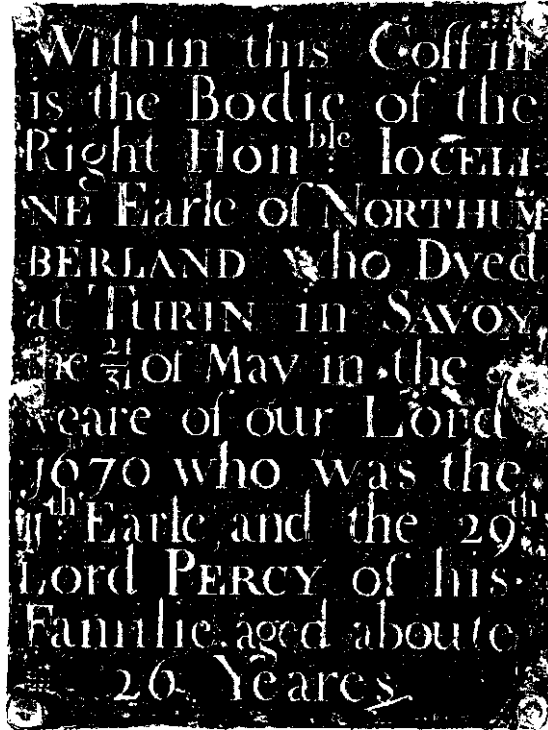 Within this Coffin
is the Bodie of the
Right Hon^ble: IOCELI
NE Earle of NORTHUM
BERLAND who Dyed
at TURIN in SAVOY
the 21/31 of May in the
yeare of our Lord
1670 who was the
11th: Earle and the 29th
Lord PERCY of his
Familie aged aboute
26 Yeares